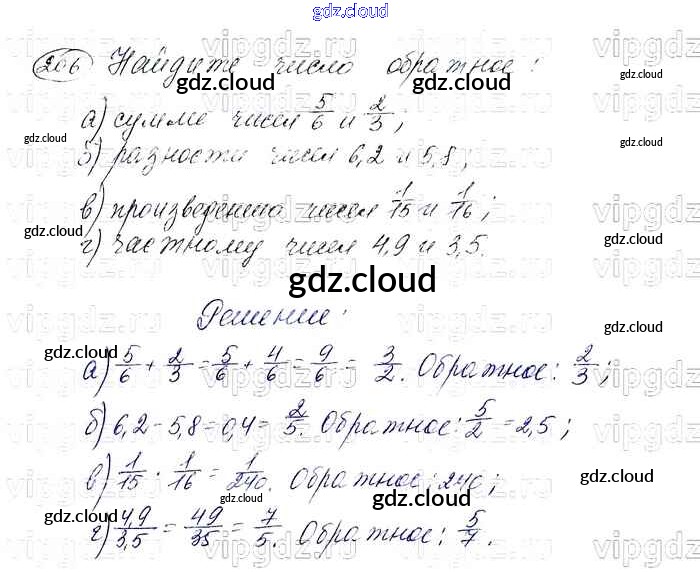 gdz.cloud
266 Найдите число обратное:
gdz.cloud gdz.cloud
а) сумме чисел 5/6 и 2/3;
gdz.cloud
б) разности чисел 6,2 и 5,8;
gdz.cloud
в) произведения чисел 1/15 и 1/16;
gdz.cloud gdz.cloud
г) частному чисел 4,9 и 3,5.
gdz.cloud
Решение:
gdz.cloud
gdz.cloud
а) 5/6 + 2/3 = 5/6 + 4/6 = 9/6 = 3/2. Обратное: 2/3;
gdz.cloud gdz.cloud
б) 6,2 - 5,8 = 0,4 = 2/5. Обратное: 5/2 = 2,5;
gdz.cloud
в) 1/15 · 1/16 = 1/240. Обратное: 240;
gdz.cloud gdz.cloud
gdz.cloud
г) 4,9/3,5 = 49/35 = 7/5. Обратное: 5/7.